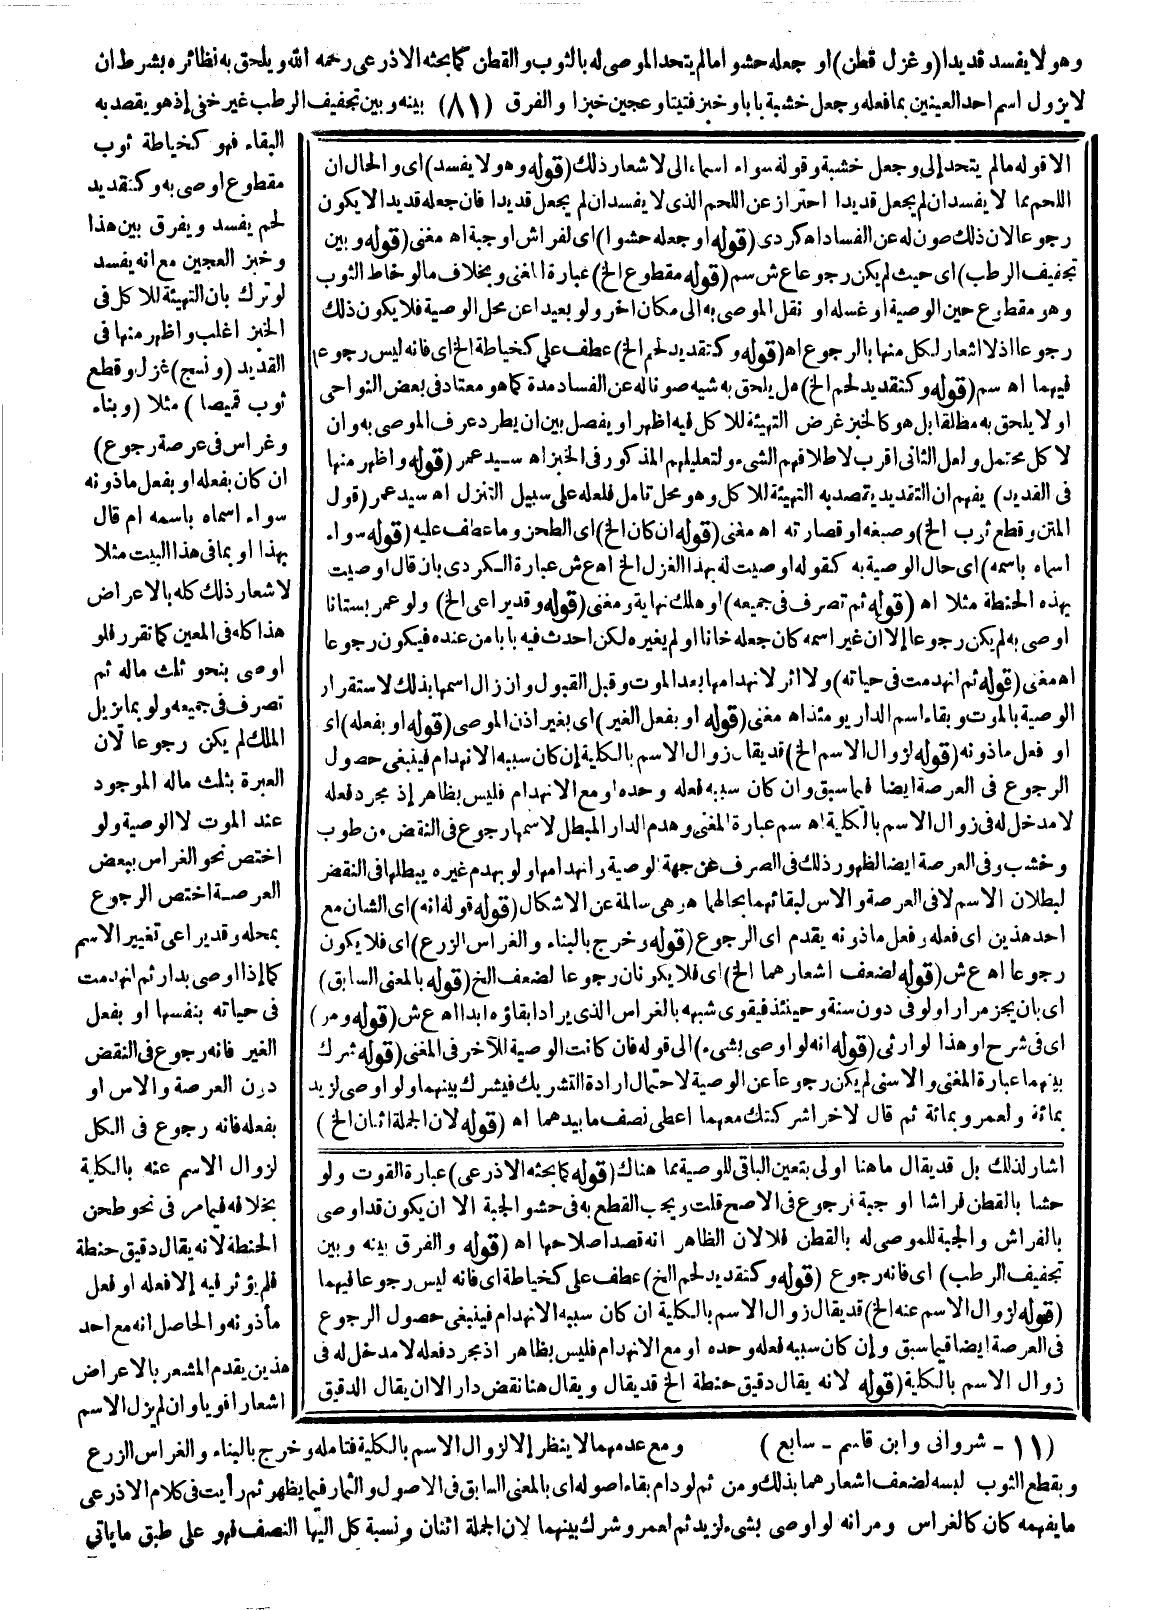 وهو لا يفسد قديدا (وغزل قطن) او جعله حشوا مالم يتحد الموصى له بالثوب والقطن كما بحثه الاذرعى رحمه الله ويلحق به نظائره بشرط ان
لا يزول اسم احد العينين بما فعله وجعل خشبة بابا وخبز فتيتا وعجين خبزا والفرق (٨١) بينه وبين تجفيف الرطب غير خفى إذ هو يقصد به
البقاء فهو كخياطة ثوب
مقطوع اوصى به وكتقديد
لحم يفسد ويفرق بين هذا
وخبز العجين مع انه يفسد
لو ترك بان التهيئة للاكل فى
الخبز اغلب واظهر منها فى
القديد (ونسج) غزل وقطع
ثوب قميصا) مثلا (وبناء
وغراس فى عرصة رجوع)
ان كان بفعله او بفعل ماذونه
سواء اسماه باسمه ام قال
بهذا او بما فى هذا البيت مثلا
لاشعار ذلك كله بالاعراض
هذا كله فى المعين كما تقرر فلو
اوصى بنحو ثلث ماله ثم
تصرف فى جميعه ولو بما يزيل
الملك لم يكن رجوعا لان
العبرة بثلث ماله الموجود
عند الموت لا الوصية ولو
اختص نحو الغراس ببعض
العرصة اختص الرجوع
بمحله وقد يراعى تغيير الاسم
كما إذا اوصى بدار ثم انهدمت
فى حياته بنفسها او بفعل
الغير فانه رجوع فى النقض
دون العرصة والاس او
بفعله فانه رجوع فى الكل
لزوال الاسم عنه بالكلية
بخلافه فيما مر فى نحو طحن
الحنطة لانه يقال دقيق حنطة
فلم يؤثر فيه إلا فعله او فعل
مأذونه والحاصل انه مع احد
هذين يقدم المشعر بالاعراض
اشعارا قويا وان لم يزل الاسم
الا قوله مالم يتحد إلى وجعل خشبة وقوله سواء اسماه الى لاشعار ذلك (قوله وهو لا يفسد) اى والحال ان
اللحم مما لا يفسد ان لم يجعل قديدا احتراز عن اللحم الذى لا يفسد ان لم يجعل قديدا فان جعله قديدا لا يكون
رجوعا لان ذلك صون له عن الفساد اه كردى (قوله او جعله حشوا) اى لفراش او جبة اه مغنى (قوله وبين
تجفيف الرطب) اى حيث لم يكن رجوعا ع ش سم (قوله مقطوع الخ) عبارة المغنى وبخلاف ما لو خاط الثوب
وهو مقطوع حين الوصية او غسله او نقل الموصى به الى مكان اخر ولو بعيدا عن محل الوصية فلا يكون ذلك
رجوعا اذ لا اشعار لكل منها بالرجوع اه (قوله وكتقديد لحم الخ) عطف على كخياطة الخ اى فانه ليس رجوعا
فيهما اه سم (قوله وكتقديد لحم الخ) هل يلحق به شيه صونا له عن الفساد مدة كما هو معتاد فى بعض النواحى
او لا يلحق به مطلقا بل هو كالخبز غرض التهيئة للاكل فيه اظهر او يفصل بين ان يطرد عرف الموصى به وان
لا كل محتمل ولعل الثانى اقرب لاطلاقهم الشىء ولتعليلهم المذكور فى الخبز اه سيد عمر (قوله واظهر منها
فى القديد) يفهم ان التقديد يتصد به التهيئة للاكل وهو محل تامل فلعله على سبيل التنزل اه سيد عمر (قول
المتن وقطع ثوب الخ) وصبغه او قصارته اه مغنى (قوله ان كان الخ) اى الطحن وما عطف عليه (قوله سواء
اسماه باسمه) اى حال الوصية به كقوله اوصيت له بهذا الغزل الخ اه ع ش عبارة الكردى بان قال اوصيت
بهذه الحنطة مثلا اه (قوله ثم تصرف فى جميعه) او هلك نهاية ومغنى (قوله وقد يراعى الخ) ولو عمر بستانا
اوصى به لم يكن رجوعا إلا ان غير اسمه كان جعله خانا او لم يغيره لكن احدث فيه بابا من عنده فيكون رجوعا
اه مغنى (قوله ثم انهدمت فى حياته) ولا اثر لانهدامها بعد الموت وقبل القبول وان زال اسمها بذلك لاستقرار
الوصية بالموت وبقاء اسم الدار يومئذ اه مغنى (قوله او بفعل الغير) اى بغير اذن الموصى (قوله او بفعله) اى
او فعل ماذونه (قوله لزوال الاسم الخ) قد يقال زوال الاسم بالكلية إن كان سببه الانهدام فينبغى حصول
الرجوع فى العرصة ايضا فيما سبق وان كان سببه فعله وحده او مع الانهدام فليس بظاهر إذ مجرد فعله
لا مدخل له فى زوال الاسم بالكلية اه سم عبارة المغنى وهدم الدار المبطل لاسمها رجوع فى النقض من طوب
وخشب وفى العرصة ايضا لظهور ذلك فى الصرف عن جهة الوصية وانهدامها ولو بهدم غيره يبطلها فى النقض
لبطلان الاسم لا فى العرصة والاس لبقائهما بحالهما اه وهى سالمة عن الاشكال (قوله قوله انه) اى الشان مع
احد هذين اى فعله وفعل ماذونه يقدم اى الرجوع (قوله وخرج بالبناء والغراس الزرع) اى فلا يكون
رجوعا اه ع ش (قوله لضعف اشعارهما الخ) اى فلا يكونان رجوعا لضعف الخ (قوله بالمعنى السابق)
اى بان يجز مرارا ولو فى دون سنة وحينئذ فيقوى شبهه بالغراس الذى يراد ابقاؤه ابدا اه ع ش (قوله ومر)
اى فى شرح او هذا لوارثى (قوله انه لو اوصى بشىء) الى قوله فان كانت الوصية للآخر فى المغنى (قوله شرك
بينهما عبارة المغنى والاسنى لم يكن رجوعا عن الوصية لاحتمال ارادة التشريك فيشرك بينهما ولو اوصى لزيد
بمائة ولعمرو بمائة ثم قال لاخر اشركتك معهما اعطى نصف ما بيدهما اه (قوله لان الجملة اثنان الخ)
اشار لذلك بل قد يقال ما هنا اولى بتعين الباقى للوصية مما هناك (قوله كما بحثه الاذرعى) عبارة القوت ولو
حشا بالقطن فراشا او جبة فرجوع فى الاصح قلت ويجب القطع به فى حشو الجبة الا ان يكون قد اوصى
بالفراش والجبة للموصى له بالقطن فلا لان الظاهر انه قصد اصلاحها اه (قوله والفرق بينه وبين
تجفيف الرطب) اى فانه رجوع (قوله وكتقديد لحم الخ) عطف على كخياطة اى فانه ليس رجوعا فيهما
(قوله لزوال الاسم عنه الخ) قد يقال زوال الاسم بالكلية ان كان سببه الانهدام فينبغى حصول الرجوع
فى العرصة ايضا فيما سبق وإن كان سببه فعله وحده او مع الانهدام فليس بظاهر اذ مجرد فعله لا مدخل له فى
زوال الاسم بالكلية (قوله لانه يقال دقيق حنطة الخ قد يقال ويقال هنا نقض دار الا ان يقال الدقيق
(١١ - شروانى وابن قاسم - سابع) ومع عدمهما لا ينظر إلا لزوال الاسم بالكلية فتامله وخرج بالبناء والغراس الزرع
وبقطع الثوب لبسه لضعف اشعارهما بذلك ومن ثم لو دام بقاء اصوله اى بالمعنى السابق فى الاصول والثمار فيما يظهر ثم رأيت فى كلام الاذرعى
ما يفهمه كان كالغراس ومر انه لو اوصى بشىء لزيد ثم لعمرو شرك بينهما لان الجملة اثنان ونسبة كل اليها النصف فهو على طبق ما ياتى